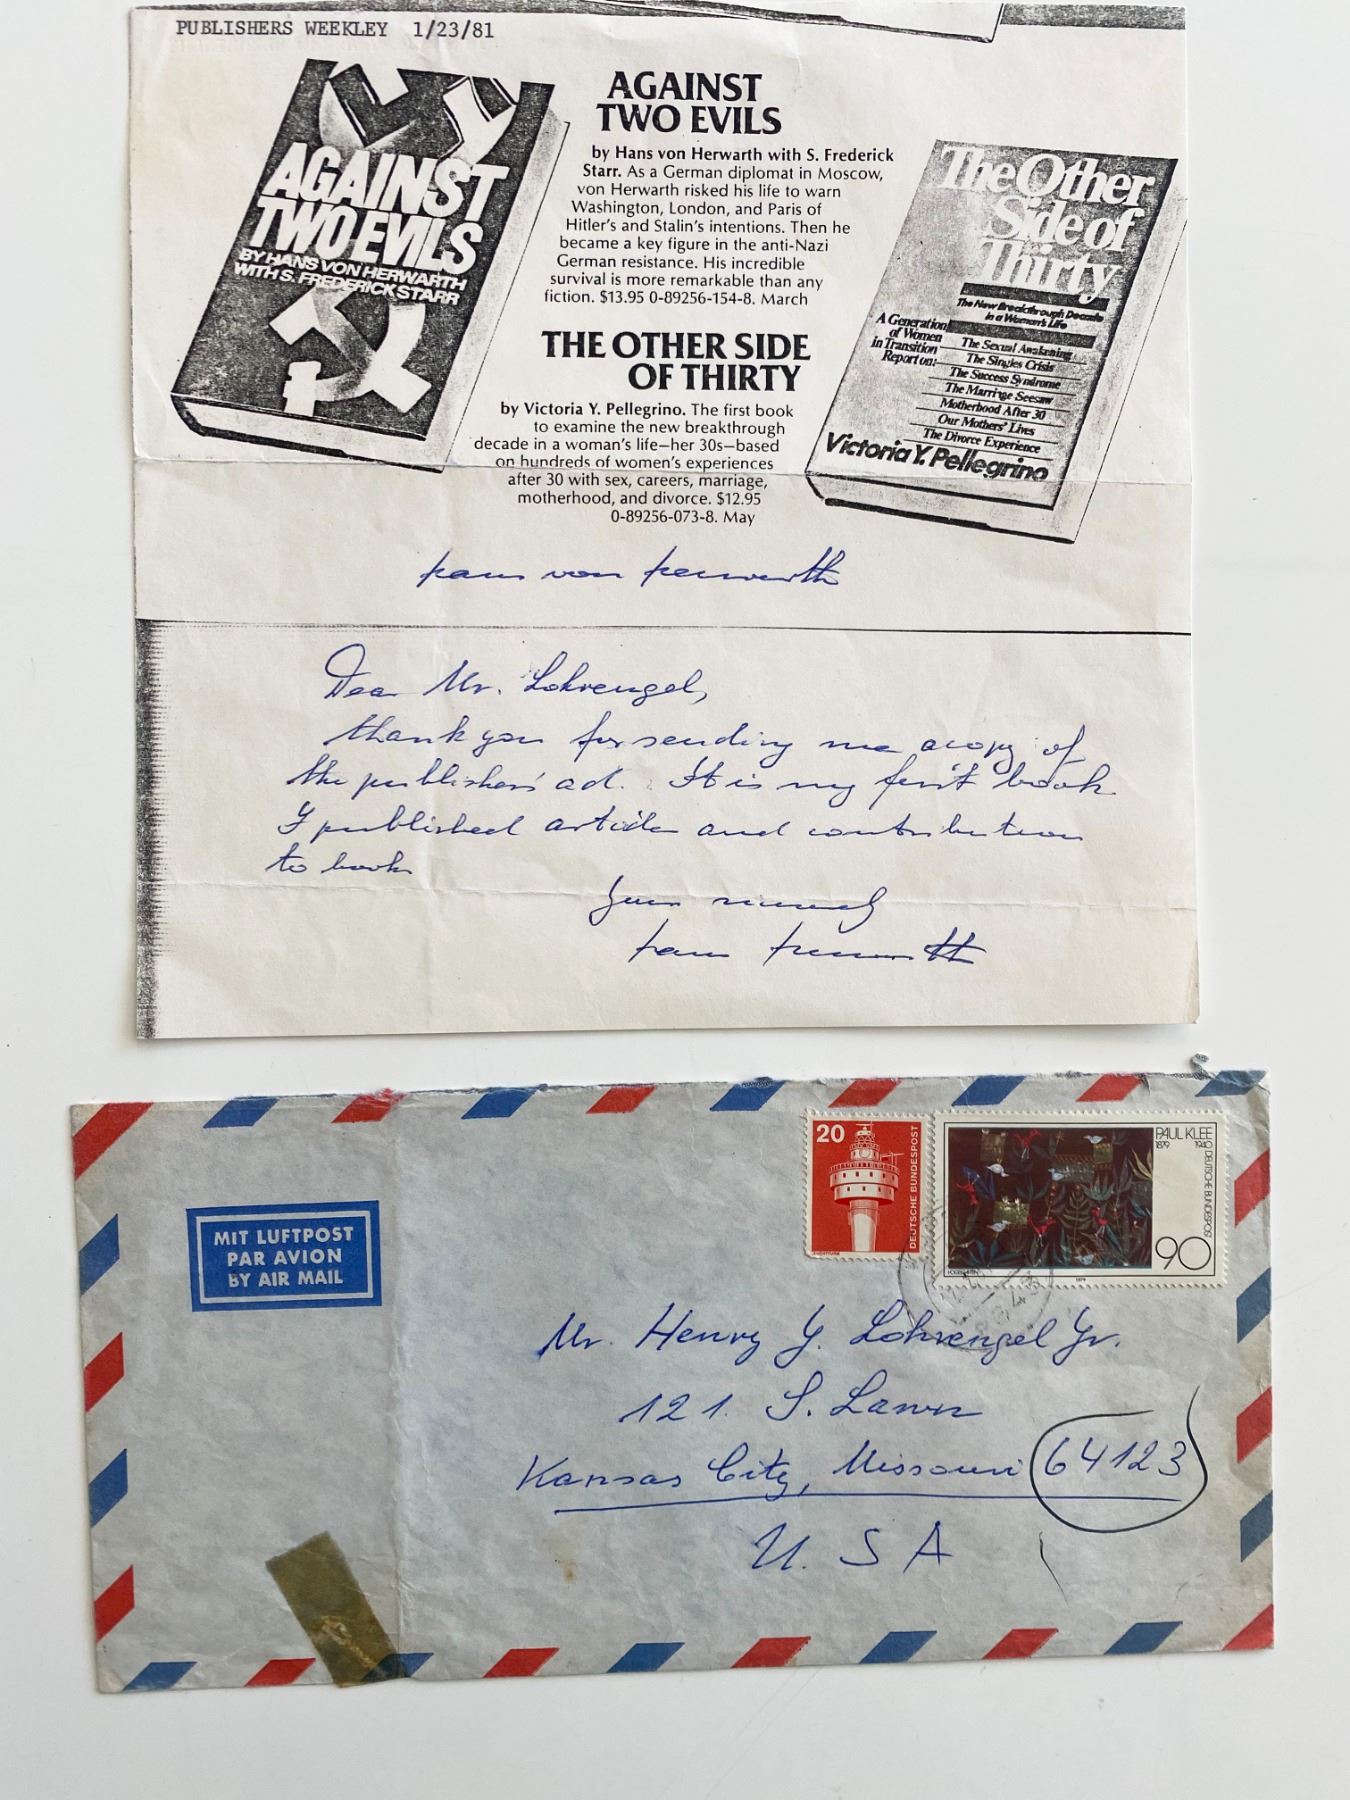 PUBLISHERS WEEKLEY 1/23/81
AGAINST
TWO EVILS
BY HANS VON HERWARTH
WITH S. FREDERICK STARR
AGAINST
TWO EVILS
by Hans von Herwarth with S. Frederick
Starr. As a German diplomat in Moscow,
von Herwarth risked his life to warn
Washington, London, and Paris of
Hitler's and Stalin's intentions. Then he
became a key figure in the anti-Nazi
German resistance. His incredible
survival is more remarkable than any
fiction. $13.95 0-89256-154-8. March
THE OTHER SIDE
OF THIRTY
by Victoria Y. Pellegrino. The first book
to examine the new breakthrough
decade in a woman's life—her 30s—based
on hundreds of women's experiences
after 30 with sex, careers, marriage,
motherhood, and divorce. $12.95
0-89256-073-8. May
The Other
Side of
Thirty
The New Breakthrough Decade
in a Woman's Life
A Generation
of Women
in Transition
Report on:
The Sexual Awakening
The Singles Crisis
The Success Syndrome
The Marriage Seesaw
Motherhood After 30
Our Mothers' Lives
The Divorce Experience
Victoria Y. Pellegrino
Hans von Herwarth
Dear Mr. Lohrengel,
thank you for sending me a copy of
the publishers' ad. It is my first book
I published articles and contributions
to books
Yours sincerely
Hans Herwarth
MIT LUFTPOST
PAR AVION
BY AIR MAIL
20
DEUTSCHE BUNDESPOST
PAUL KLEE
1879 1940
DEUTSCHE BUNDESPOST
90
1979
Mr. Henry G. Lohrengel Jr.
121. S. Lawn
Kansas City, Missouri 64123
U. S A